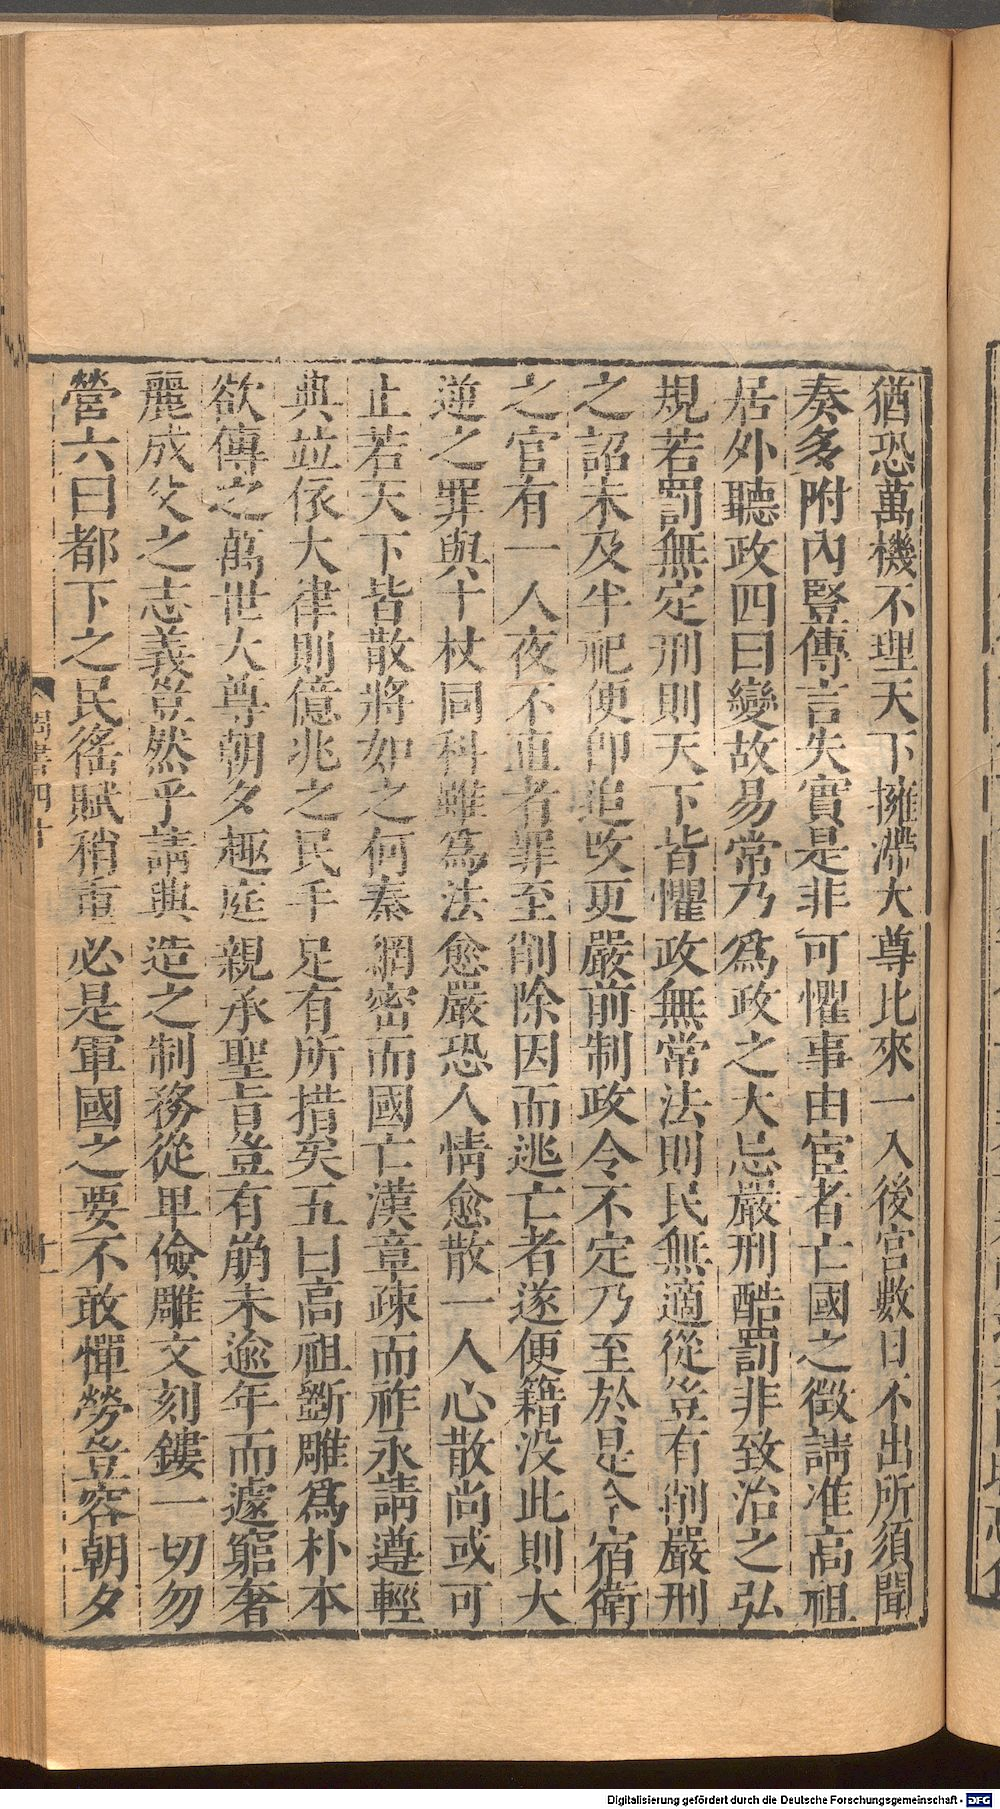 猶恐萬機不理天下擁滯大尊比來一入後宮數日不出所須聞
奏多附內豎傳言失實是非可懼事由宦者亡國之徵請准高祖
居外聽政四曰變故易常乃爲政之大忌嚴刑酷罰非致治之弘
規若罰無定刑則天下皆懼政無常法則民無適從豈有削嚴刑
之詔未及半祀便卽追改更嚴前制政令不定乃至於是今宿衛
之官有一人夜不直者罪至削除因而逃亡者遂便籍沒此則大
逆之罪與十杖同科雖爲法愈嚴恐人情愈散一人心散尚或可
止若天下皆散將如之何秦網密而國亡漢章疎而祚永請遵輕
典並依大律則億兆之民手足有所措矣五曰高祖斲雕爲朴本
欲傳之萬世大尊朝夕趨庭親承聖旨豈有崩未逾年而遽窮奢
麗成父之志義豈然乎請興造之制務從卑儉雕文刻鏤一切勿
營六曰都下之民徭賦稍重必是軍國之要不敢憚勞豈容朝夕
周書四十
十一
Digitalisierung gefördert durch die Deutsche Forschungsgemeinschaft - DFG